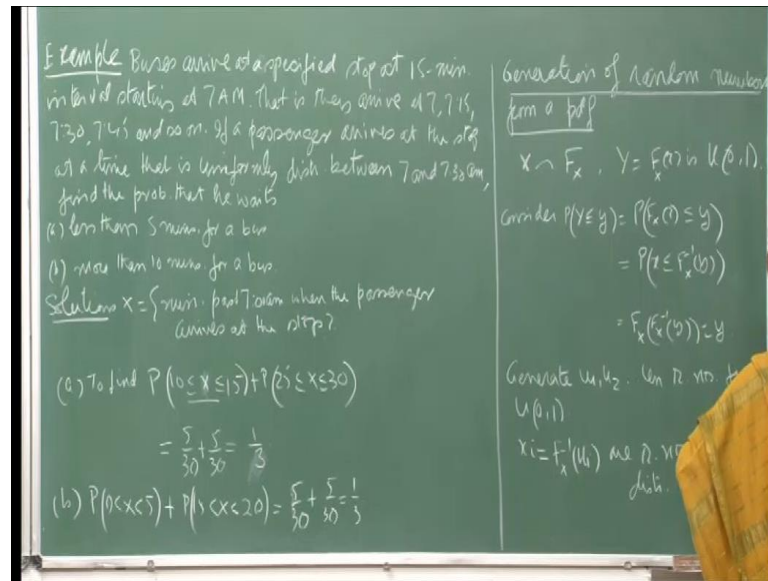 Example Buses arrive at a specified stop at 15-min.
interval starting at 7 AM. That is they arrive at 7, 7:15,
7:30, 7:45 and so on. If a passenger arrives at the stop
at a time that is uniformly dist. between 7 and 7:30 am,
find the prob. that he waits
(a) less than 5 mins. for a bus
(b) more than 10 mins. for a bus.
Solution X = { min. past 7:00am when the passenger
arrives at the stop}
(a) To find P(10≤X≤15)+P(25≤X≤30)
= 5/30 + 5/30 = 1/3
(b) P(0<X<5) + P(15<X<20) = 5/30 + 5/30 = 1/3
Generation of random numbers
from a pdf
X ~ F_X, Y = F_X(X) is U(0,1).
Consider P(Y≤y) = P(F_X(X) ≤ y)
= P(X ≤ F_X^{-1}(y))
= F_X(F_X^{-1}(y)) = y
Generate u1, u2.. un R. no.
U(0,1)
xi = F_X^{-1}(ui) are R. no
dist.